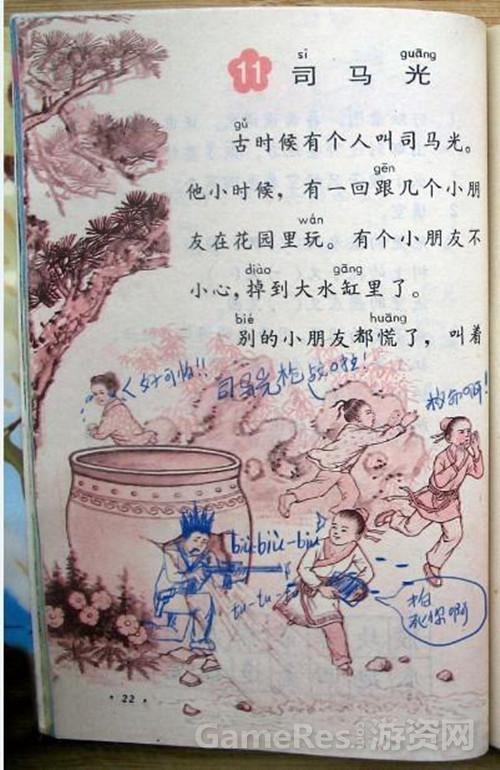 11 司马光
sī guāng
gǔ
古时候有个人叫司马光。
gēn
他小时候，有一回跟几个小朋
wán
友在花园里玩。有个小朋友不
diào gāng
小心，掉到大水缸里了。
bié huāng
别的小朋友都慌了，叫着
好可怕!!
司马光枪战啦!
救命啊!
biu-biu-biu
tu-tu-t
拍
死你啊
22
GameRes.com游资网